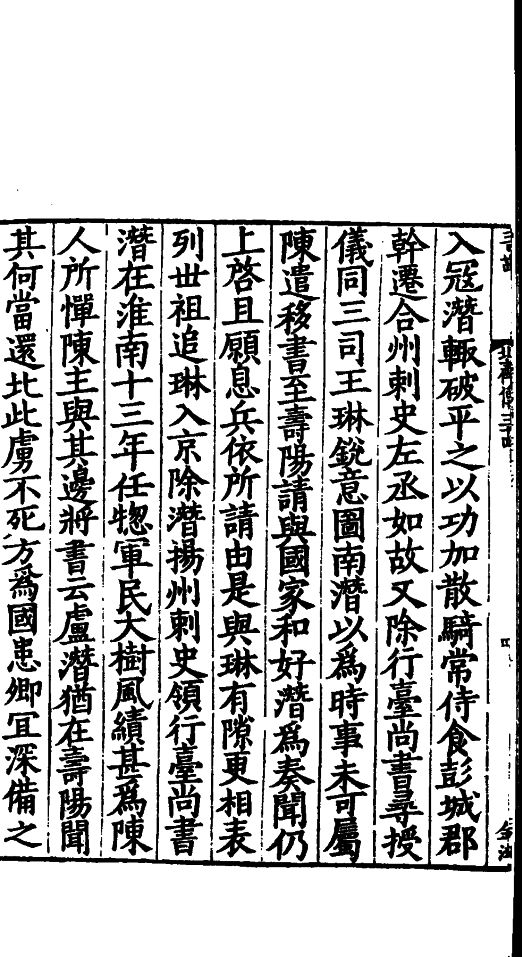 入寇潛輒破平之以功加散騎常侍食彭城郡
幹遷合州刺史左丞如故又除行臺尚書尋授
儀同三司王琳銳意圖南潛以爲時事未可屬
陳遣移書至壽陽請與國家和好潛爲奏聞仍
上啓且願息兵依所請由是與琳有隙更相表
列世祖追琳入京除潛揚州刺史領行臺尚書
潛在淮南十三年任惣軍民大樹風績甚爲陳
人所憚陳主與其邊將書云盧潛猶在壽陽聞
其何當還北此虜不死方爲國患卿宜深備之